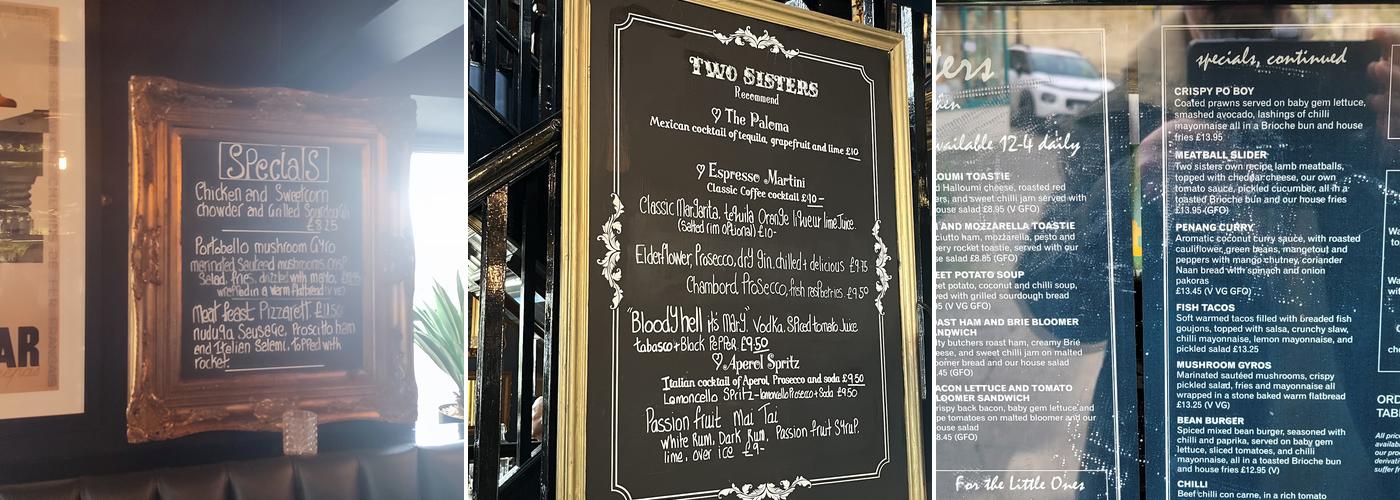 AR
Specials
Chicken and Sweetcorn
chowder and Grilled Sourdough
£8.25
Portobello mushroom Gyro
marinated Sauteed mushrooms, crispy
Salad, fries, drizzled with mayo,
wrapped in a warm flatbread
Meat feast Pizzarett. £11.50
nuduja Sausage, Proscitto ham
and Italian Salemi. Topped with
rocket.
TWO SISTERS
Recommend
The Paloma
Mexican cocktail of tequila, grapefruit and lime £10
Espresso Martini
Classic Coffee cocktail £10-
Classic Margarita, tequila Orange liqueur lime Juice.
(Salted rim optional) £10-
Elderflower, Prosecco, dry gin, chilled + delicious £9.75
Chambord, Prosecco, fresh raspberries. £9.50
"Bloody hell it's Mary". Vodka. Spiced tomato Juice
tabasco + Black PePPer. £9.50
Aperol Spritz
Italian cocktail of Aperol, Prosecco and soda £9.50
Lamoncello Spritz - lamoncello Prosecco + Soda £9.50
Passion fruit Mai Tai
white Rum, Dark Rum, Passion fruit Syrup.
lime, over ice £9-
ters
hen
vailable 12-4 daily
LOUMI TOASTIE
d Halloumi cheese, roasted red
ers, and sweet chilli jam served with
ouse salad £8.95 (V GFO)
AND MOZZARELLA TOASTIE
ciutto ham, mozzarella, pesto and
ery rocket toastie, served with our
se salad £8.85 (GFO)
EET POTATO SOUP
et potato, coconut and chilli soup,
ved with grilled sourdough bread
.45 (V GFO)
OAST HAM AND BRIE BLOOMER
ANDWICH
ty butchers roast ham, creamy Brie
eese, and sweet chilli jam on malted
omer bread and our house salad
.45 (GFO)
ACON LETTUCE AND TOMATO
LOOMER SANDWICH
rispy back bacon, baby gem lettuce and
pe tomatoes on malted bloomer and our
ouse salad
8.45 (GFO)
For the Little Ones
specials, continued
CRISPY PO BOY
Coated prawns served on baby gem lettuce,
smashed avocado, lashings of chilli
mayonnaise all in a Brioche bun and house
fries £13.95
MEATBALL SLIDER
Two sisters own recipe lamb meatballs,
topped with cheddar cheese, our own
tomato sauce, pickled cucumber, all in a
toasted Brioche bun and our house fries
£13.95 (GFO)
PENANG CURRY
Aromatic coconut curry sauce, with roasted
cauliflower, green beans, mangetout and
peppers with mango chutney, coriander
Naan bread with spinach and onion
pakoras
£13.45 (V VG GFO)
FISH TACOS
Soft warmed tacos filled with breaded fish
goujons, topped with salsa, crunchy slaw,
chilli mayonnaise, lemon mayonnaise, and
pickled salad £13.25
MUSHROOM GYROS
Marinated sautéed mushrooms, crispy
pickled salad, fries and mayonnaise all
wrapped in a stone baked warm flatbread
£13.25 (V VG)
BEAN BURGER
Spiced mixed bean burger, seasoned with
chilli and paprika, served on baby gem
lettuce, sliced tomatoes, and chilli
mayonnaise, all in a toasted Brioche bun
and house fries £12.95 (V)
CHILLI
Beef chilli con carne, in a rich tomato
Wa
to
Wa
with
che
ORD
TAB
All pric
availab
our pro
derivati
suffer fr